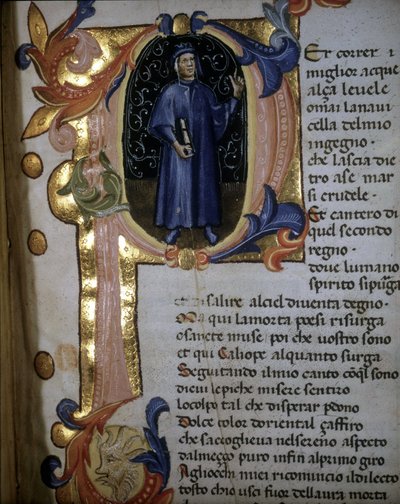 PEr correr i
miglior acque
alça leuele
omai lanaui
cella delmio
ingegno ·
che lascia die
tro ase mar
si crudele ·
Et cantero di
quel secondo
regno ·
doue lumano
spirito sipurga
et di salire alciel diuenta degno ·
Ma qui lamorta poesi risurga
o sancte muse poi che uostro sono
et qui Caliope alquanto surga
Seguitando ilmio canto coq̃l sono
dicui lepiche misere sentiro
locolpo tal che disperar p̱dono
Dolce color doriental çaffiro
che saccoglieua nelsereno aspecto
dalmeçço puro infin alprimo giro
Agliocchi miei ricomincio ildilecto
tosto chio usci fuor dellaura morta